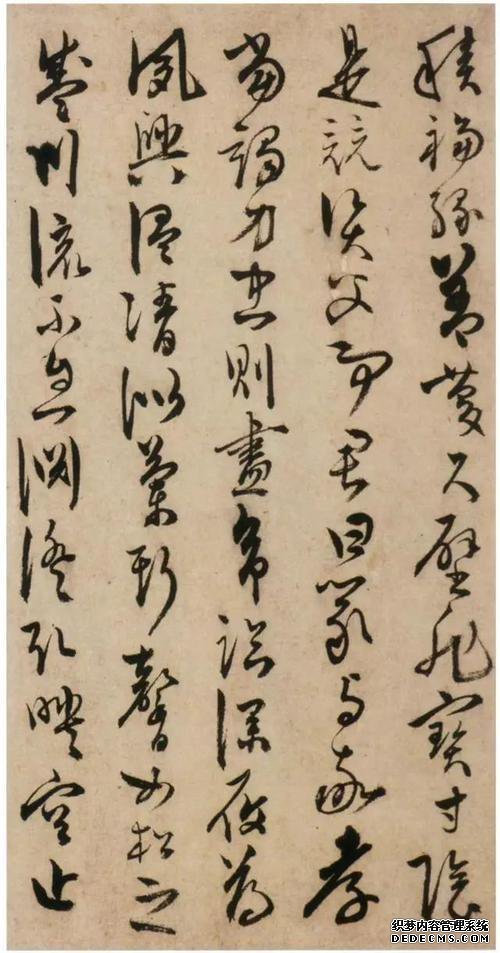 積福緣善慶尺璧非寶寸陰
是競資父事君曰嚴與敬孝
當竭力忠則盡命臨深履薄
夙興温清似蘭斯馨如松之
盛川流不息淵澄取映容止
织梦内容管理系统
DEDECMS.COM